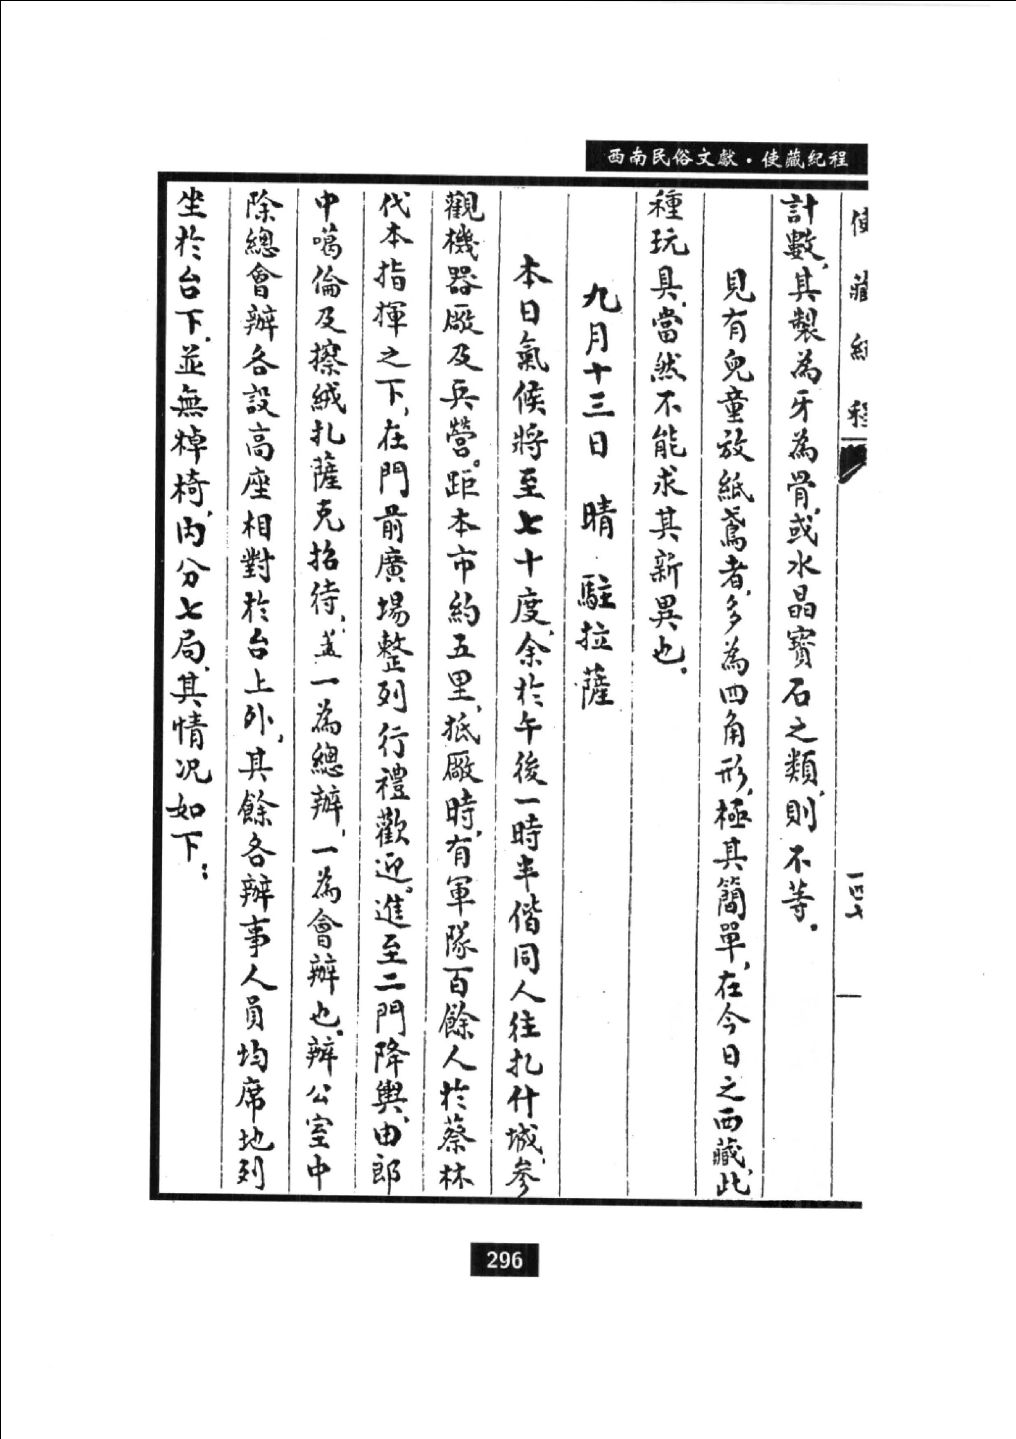 西南民俗文獻・使藏紀程
使藏紀程
一四七
計數，其製為牙為骨，或水晶寶石之類，則不等。
見有兒童放紙鳶者，多為四角形，極其簡單，在今日之西藏，此
種玩具，當然不能求其新異也。
九月十三日　晴　駐拉薩
本日氣候將至七十度，余於午後一時半偕同人往扎什城，參
觀機器廠及兵營。距本市約五里，抵廠時，有軍隊百餘人於蔡林
代本指揮之下，在門前廣場整列行禮歡迎。進至二門降輿，由郎
中噶倫及擦絨扎薩克招待，蓋一為總辦，一為會辦也。辦公室中
除總會辦各設高座相對於台上外，其餘各辦事人員均席地列
坐於台下，並無棹椅，內分七局，其情況如下：
296